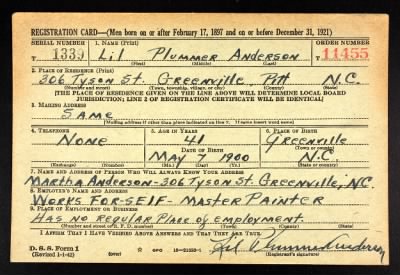 REGISTRATION CARD—(Men born on or after February 17, 1897 and on or before December 31, 1921)
SERIAL NUMBER 1. NAME (Print) ORDER NUMBER
T 1339 Lil Plummer Anderson T 11455
(First) (Middle) (Last)
2. PLACE OF RESIDENCE (Print)
306 Tyson St. Greenville, Pitt N.C.
(Number and street) (Town, township, village, or city) (County) (State)
[THE PLACE OF RESIDENCE GIVEN ON THE LINE ABOVE WILL DETERMINE LOCAL BOARD
JURISDICTION; LINE 2 OF REGISTRATION CERTIFICATE WILL BE IDENTICAL]
3. MAILING ADDRESS
SAME
[Mailing address if other than place indicated on line 2. If same insert word same]
4. TELEPHONE 5. AGE IN YEARS 6. PLACE OF BIRTH
NONE 41 Greenville
DATE OF BIRTH (Town or county)
MAY 7 1900 N.C.
(Exchange) (Number) (Mo.) (Day) (Yr.) (State or country)
7. NAME AND ADDRESS OF PERSON WHO WILL ALWAYS KNOW YOUR ADDRESS
Martha Anderson-306 Tyson St. Greenville, N.C.
8. EMPLOYER'S NAME AND ADDRESS
WORKS FOR-SELF- MASTER PAINTER
9. PLACE OF EMPLOYMENT OR BUSINESS
HAS NO REGULAR PLACE OF EMPLOYMENT.
(Number and street or R. F. D. number) (Town) (County) (State)
I AFFIRM THAT I HAVE VERIFIED ABOVE ANSWERS AND THAT THEY ARE TRUE.
D. S. S. Form 1 GPO Lil Plummer Anderson
(Revised 1-1-42) (Registrant's signature)